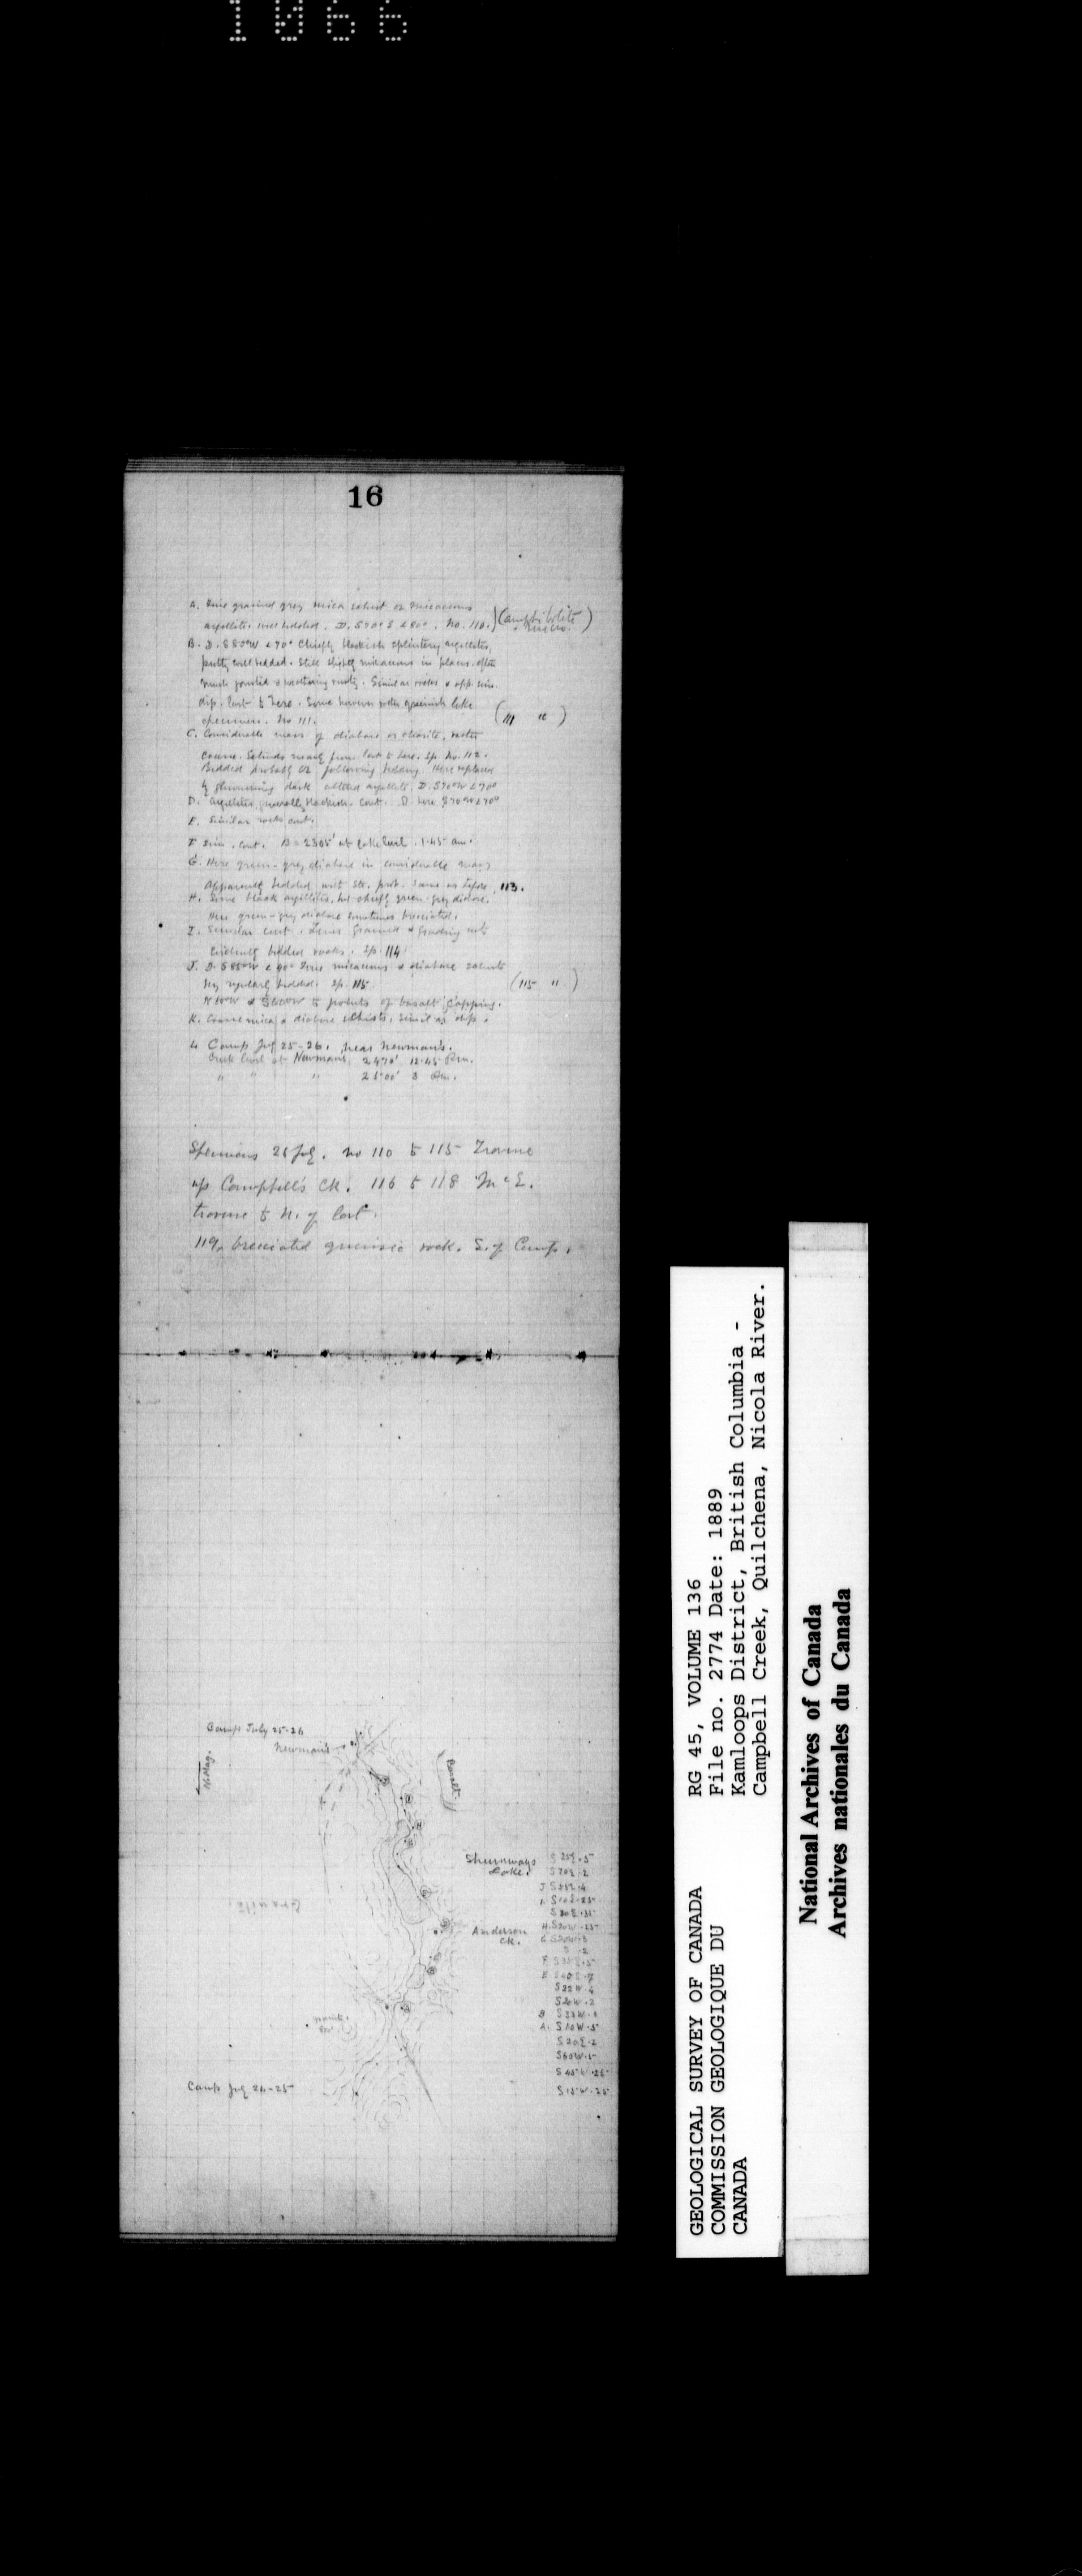 1066
16
A. Fine grained grey mica schist or micaceous
argellite. well bedded. D. S70°E <80°. No. 110. } (amphibolite)
B. D. S80°W <70° Chiefly blackish splintery argellites,
pretty well bedded. Still slightly micaceous in places. often
much jointed & weathering rusty. Similar rocks & app. sim.
dip. last to here. Some however rather greenish like
specimen. No 111. (111 " )
C. Considerable mass of diabase or rather
coarse. Extends nearly from last to here. Sp. No. 112.
Bedded probably or following bedding. Here replaced
by dark altered argellite D. S70°W <70°
D. argellites, generally blackish. cont. D. here S70°W <70°
E. Similar rocks cont.
F Sim. cont. B = 2305' at lake level. 1.45 am.
G. Here green-grey diabase in considerable mass
apparently bedded with str. prob. same as before. 113.
H. Some black argellites, but chiefly green-grey diabase.
Here green-grey diabase sometimes brecciated.
I. Similar cont. grained & grading into
Evidently bedded rocks. Sp. 114
J. D. S85°W <90° Fine micaceous & diabase schists
very regularly bedded. Sp. 115. (115 " )
N10°W & S60°W to points of basalt capping.
K. Coarse mica & diabase schists, similar dip.
Camp July 25-26. near Newman's.
Creek level at Newmans, 2470' 12.45 Pm.
" " " 2500' 3 Pm.
Specimens 26 July. No 110 to 115 Traverse
up Campbell's Ck. 116 to 118 McE.
traverse to N. of last.
119, brecciated gneissic rock. S. of Camp.
Camp July 25-26
Newman's
N. Mag.
Basalt
Shumways
Lake.
Granite
Anderson
Ck.
Camp July 24-25
S 25E .5
S 70E .2
J S 55E .4
I. S 10E .25
S 30E .35
H. S 20W .25
G S 20W .3
S .2
F S 35E .5
E S 40E .7
S 25W .4
S 20W .2
B S 23W .8
A. S 10W .5
S 20E .2
S 60W .5
S 45W .25
S 15W .25
GEOLOGICAL SURVEY OF CANADA
COMMISSION GEOLOGIQUE DU
CANADA
RG 45, VOLUME 136
File no. 2774 Date: 1889
Kamloops District, British Columbia -
Campbell Creek, Quilchena, Nicola River.
National Archives of Canada
Archives nationales du Canada